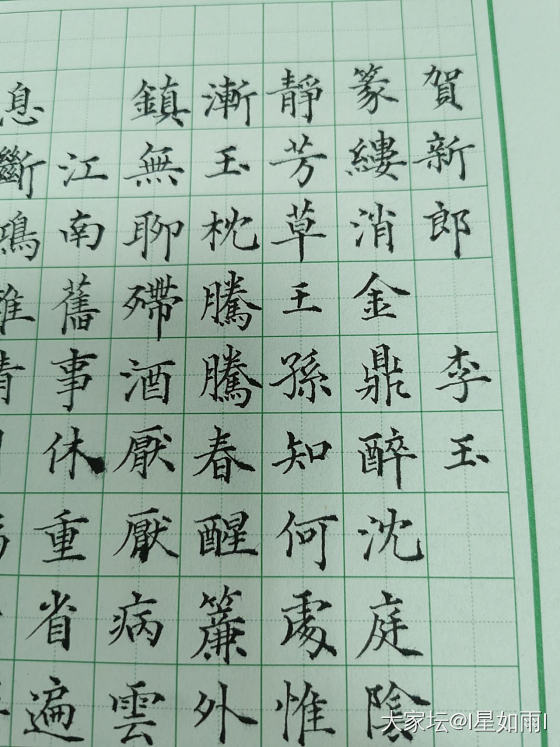 賀新郎 李玉
篆縷消金鼎醉沈庭陰
靜芳草王孫知何處惟
漸玉枕騰騰春醒簾外
鎮無聊殢酒厭厭病雲
江南舊事休重省遍
息斷鴻
大家坛@l星如雨l